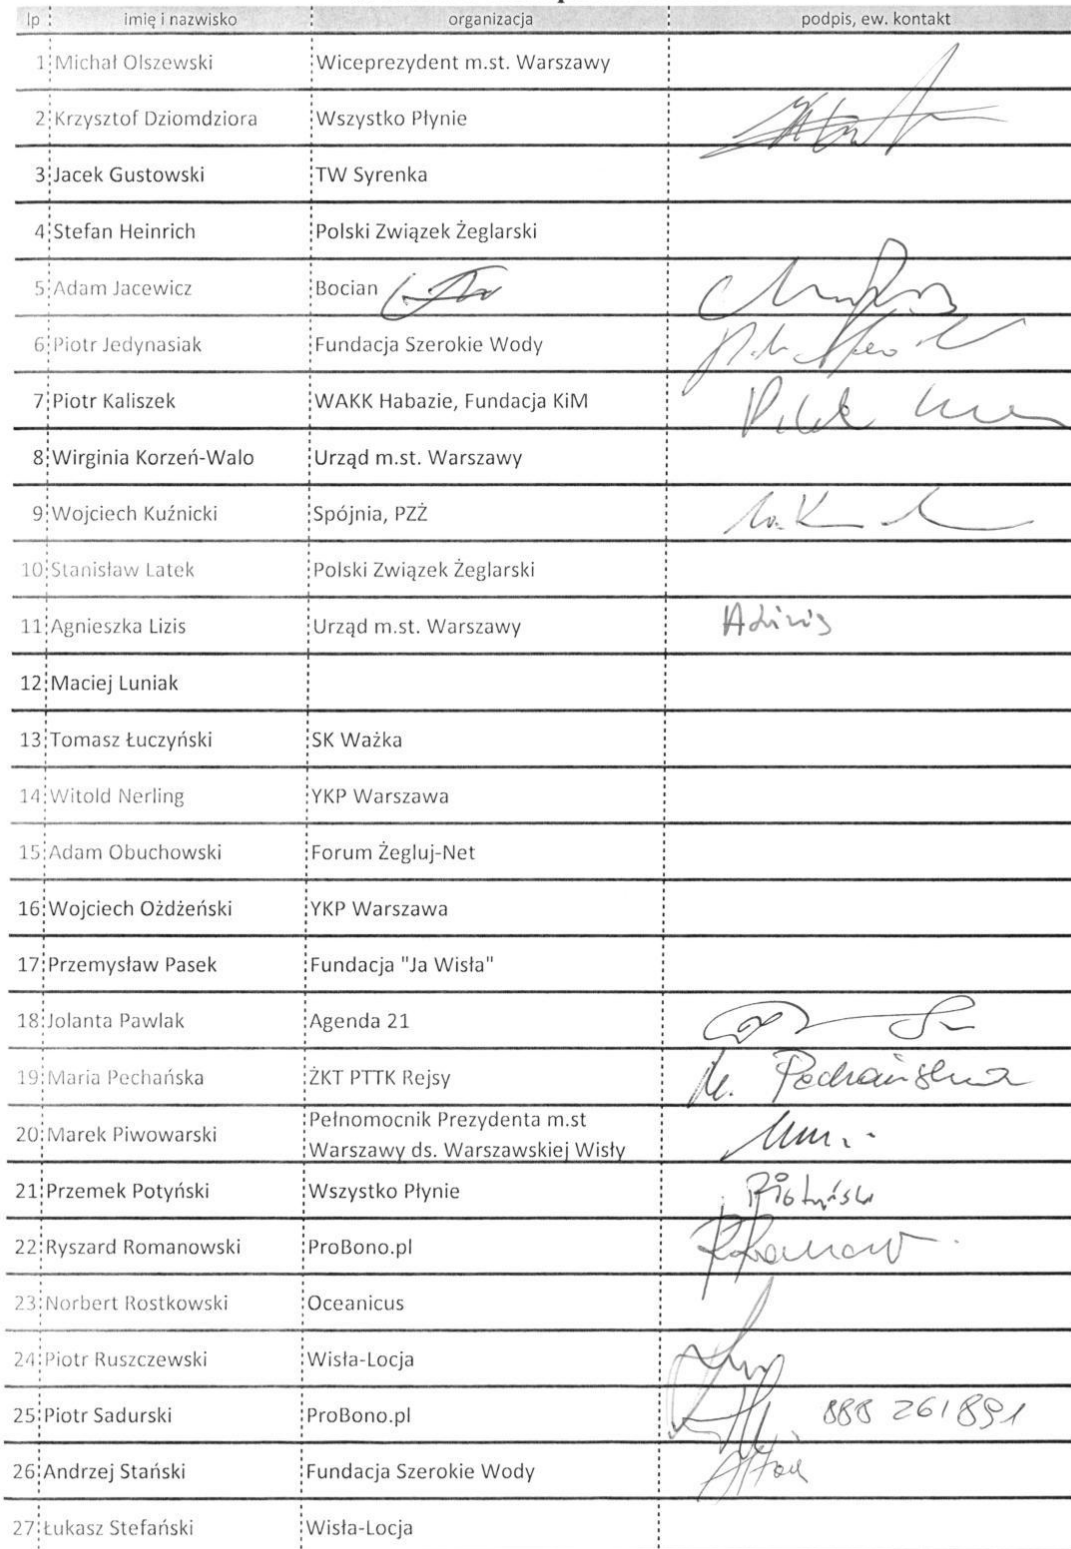 lp imię i nazwisko organizacja podpis, ew. kontakt
1 Michał Olszewski Wiceprezydent m.st. Warszawy
2 Krzysztof Dziomdziora Wszystko Płynie
3 Jacek Gustowski TW Syrenka
4 Stefan Heinrich Polski Związek Żeglarski
5 Adam Jacewicz Bocian
6 Piotr Jedynasiak Fundacja Szerokie Wody
7 Piotr Kaliszek WAKK Habazie, Fundacja KiM
8 Wirginia Korzeń-Walo Urząd m.st. Warszawy
9 Wojciech Kuźnicki Spójnia, PZŻ
10 Stanisław Latek Polski Związek Żeglarski
11 Agnieszka Lizis Urząd m.st. Warszawy ALizis
12 Maciej Luniak
13 Tomasz Łuczyński SK Ważka
14 Witold Nerling YKP Warszawa
15 Adam Obuchowski Forum Żegluj-Net
16 Wojciech Ożdżeński YKP Warszawa
17 Przemysław Pasek Fundacja "Ja Wisła"
18 Jolanta Pawlak Agenda 21
19 Maria Pechańska ŻKT PTTK Rejsy M. Pechańska
20 Marek Piwowarski Pełnomocnik Prezydenta m.st
Warszawy ds. Warszawskiej Wisły
21 Przemek Potyński Wszystko Płynie
22 Ryszard Romanowski ProBono.pl
23 Norbert Rostkowski Oceanicus
24 Piotr Ruszczewski Wisła-Locja
25 Piotr Sadurski ProBono.pl 888 261 891
26 Andrzej Stański Fundacja Szerokie Wody
27 Łukasz Stefański Wisła-Locja